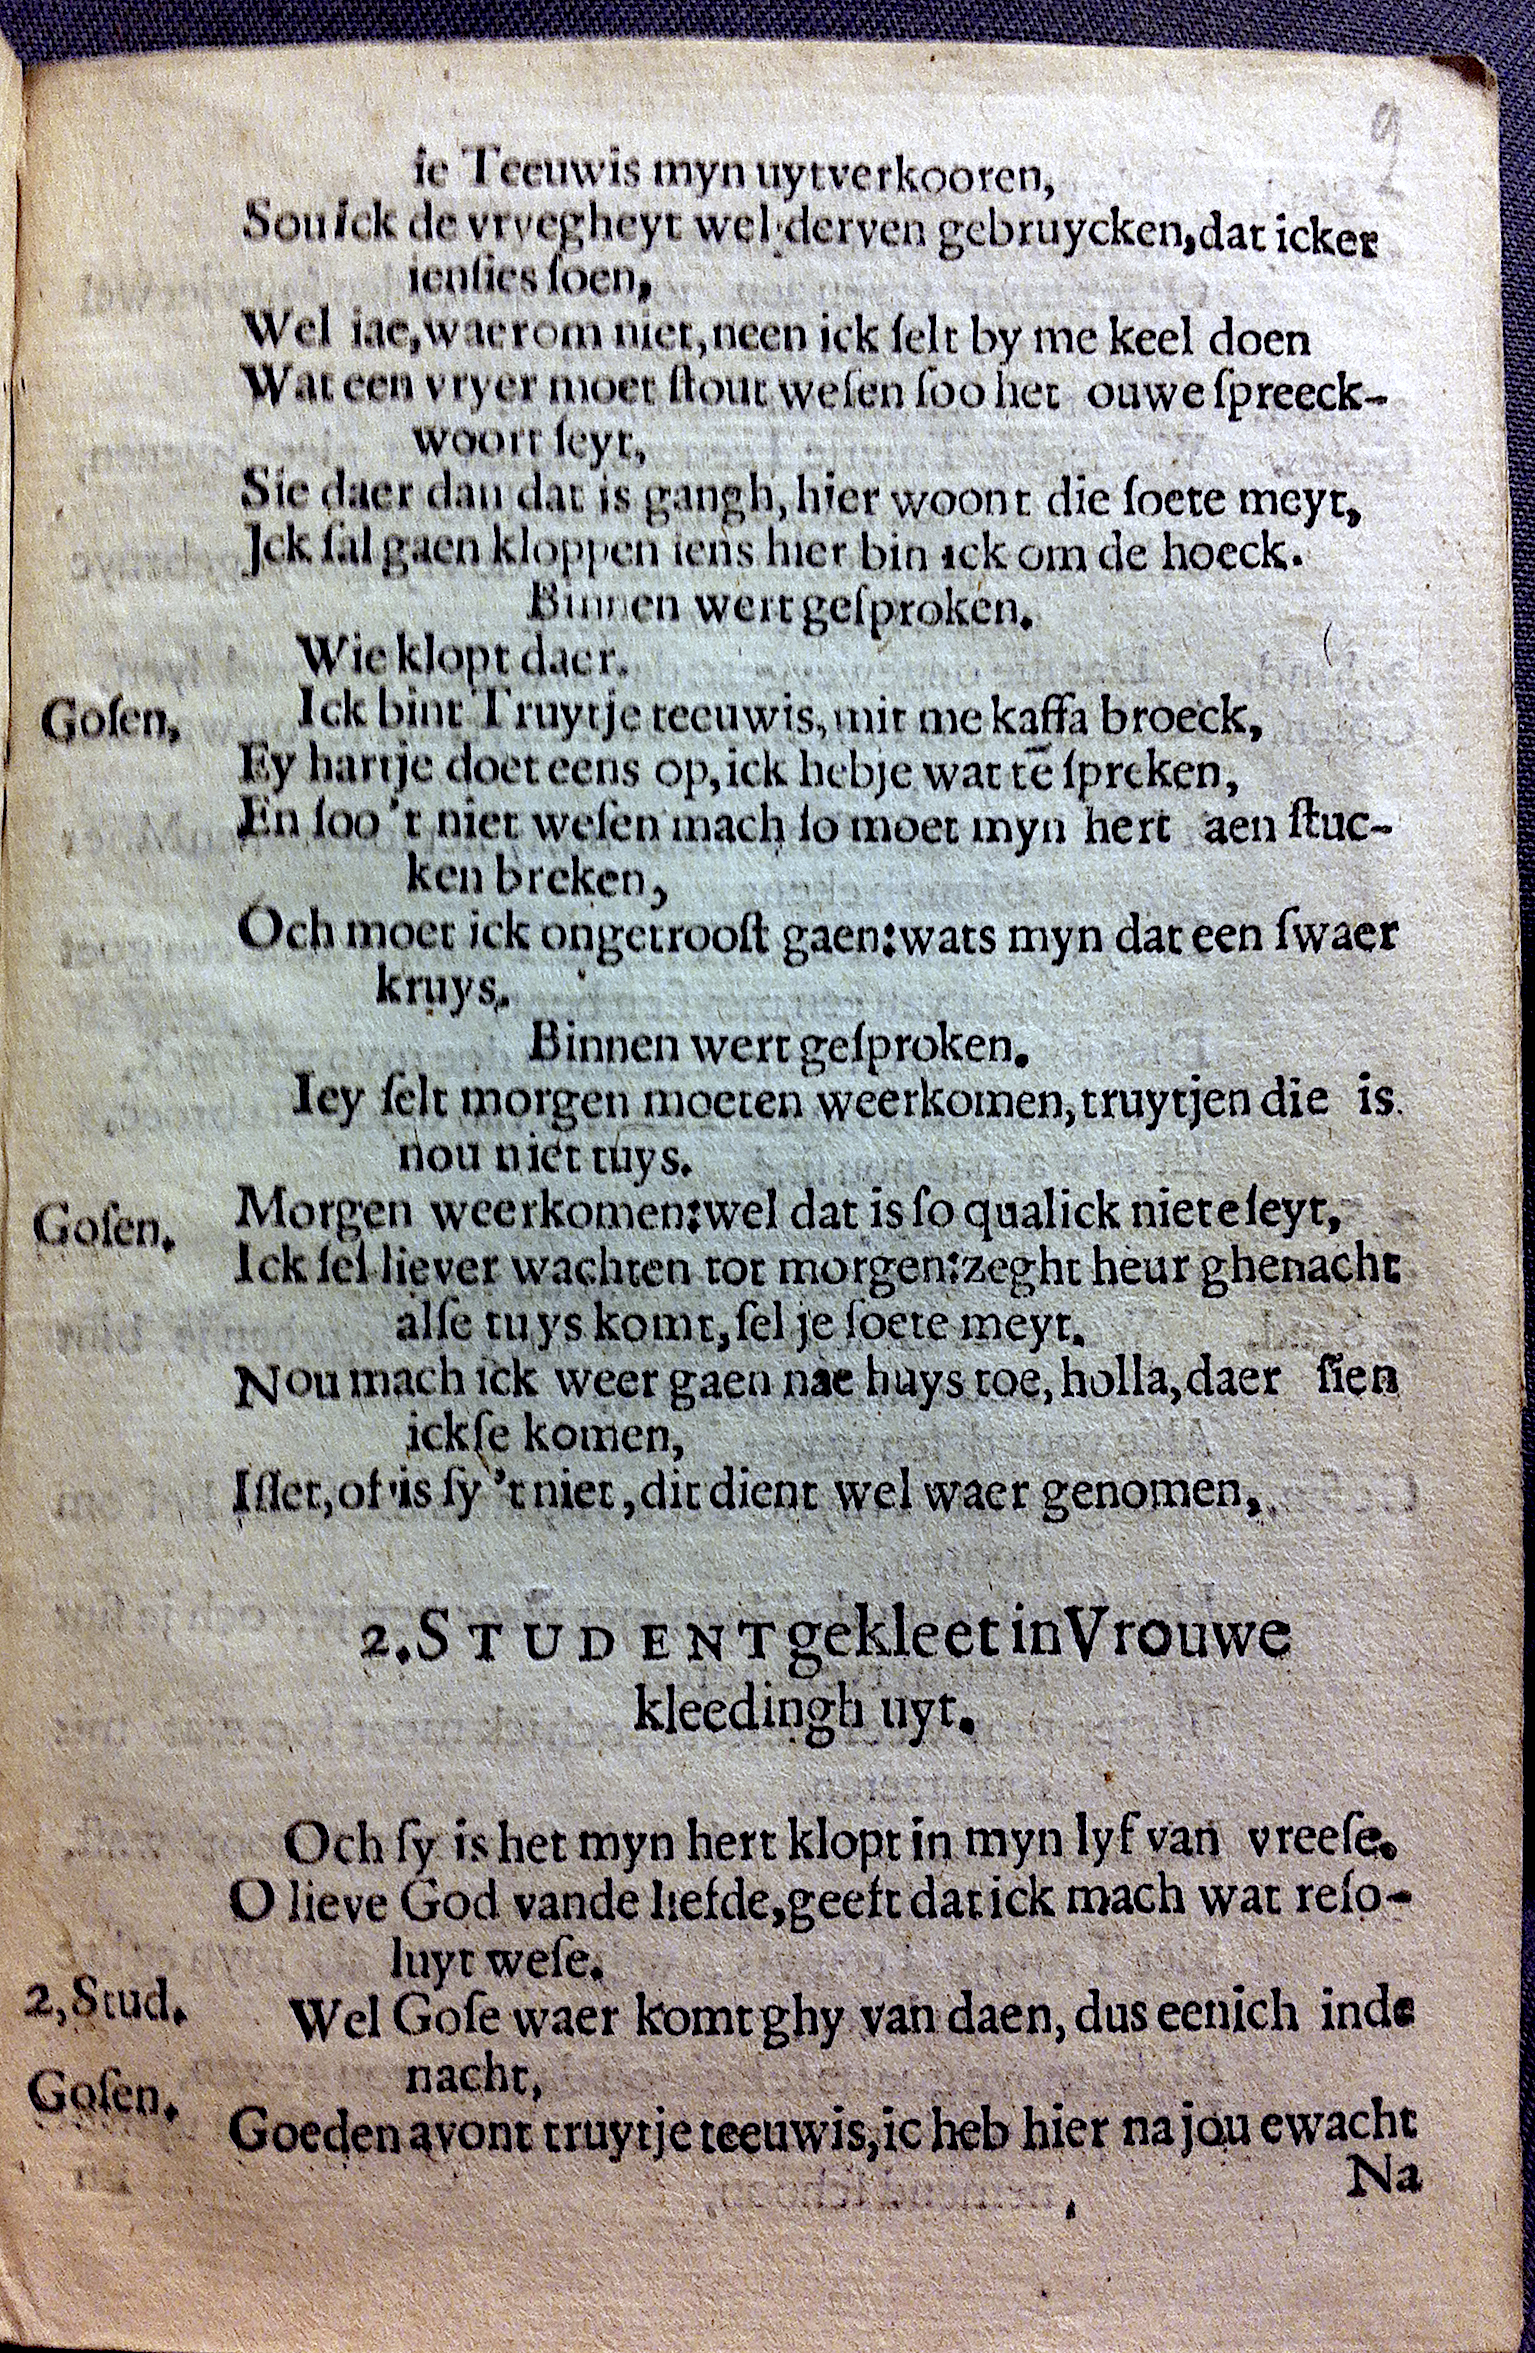 9
ie Teeuwis myn uytverkooren,
Sou ick de vryegheyt wel derven gebruycken, dat icker
ienſies ſoen,
Wel iae, waerom niet, neen ick ſelt by me keel doen
Wat een vryer moet ſtout weſen ſoo het ouwe ſpreeck-
woort ſeyt,
Sie daer dan dat is gangh, hier woont die ſoete meyt,
Jck ſal gaen kloppen iens hier bin ick om de hoeck.
Binnen wert geſproken.
Wie klopt daer.
Goſen, Ick bint Truytje teeuwis, mit me kaffa broeck,
Ey hartje doet eens op, ick hebje wat tē ſpreken,
En ſoo 't niet weſen mach ſo moet myn hert aen ſtuc-
ken breken,
Och moet ick ongetrooſt gaen: wats myn dat een ſwaer
kruys.
Binnen wert geſproken.
Iey ſelt morgen moeten weerkomen, truytjen die is
nou niet tuys.
Goſen. Morgen weerkomen: wel dat is ſo qualick niet eſeyt,
Ick ſel liever wachten tot morgen: zeght heur ghenacht
alſe tuys komt, ſel je ſoete meyt.
Nou mach ick weer gaen nae huys toe, holla, daer ſien
ickſe komen,
Iſſet, of 'is ſy 't niet, dit dient wel waer genomen,
2. STUDENT gekleet in Vrouwe
kleedingh uyt.
Och ſy is het myn hert klopt in myn lyf van vreeſe.
O lieve God vande liefde, geeft dat ick mach wat reſo-
luyt weſe.
2, Stud. Wel Goſe waer komt ghy van daen, dus eenich inde
nacht,
Goſen. Goeden avont truytje teeuwis, ic heb hier na jou ewacht
Na